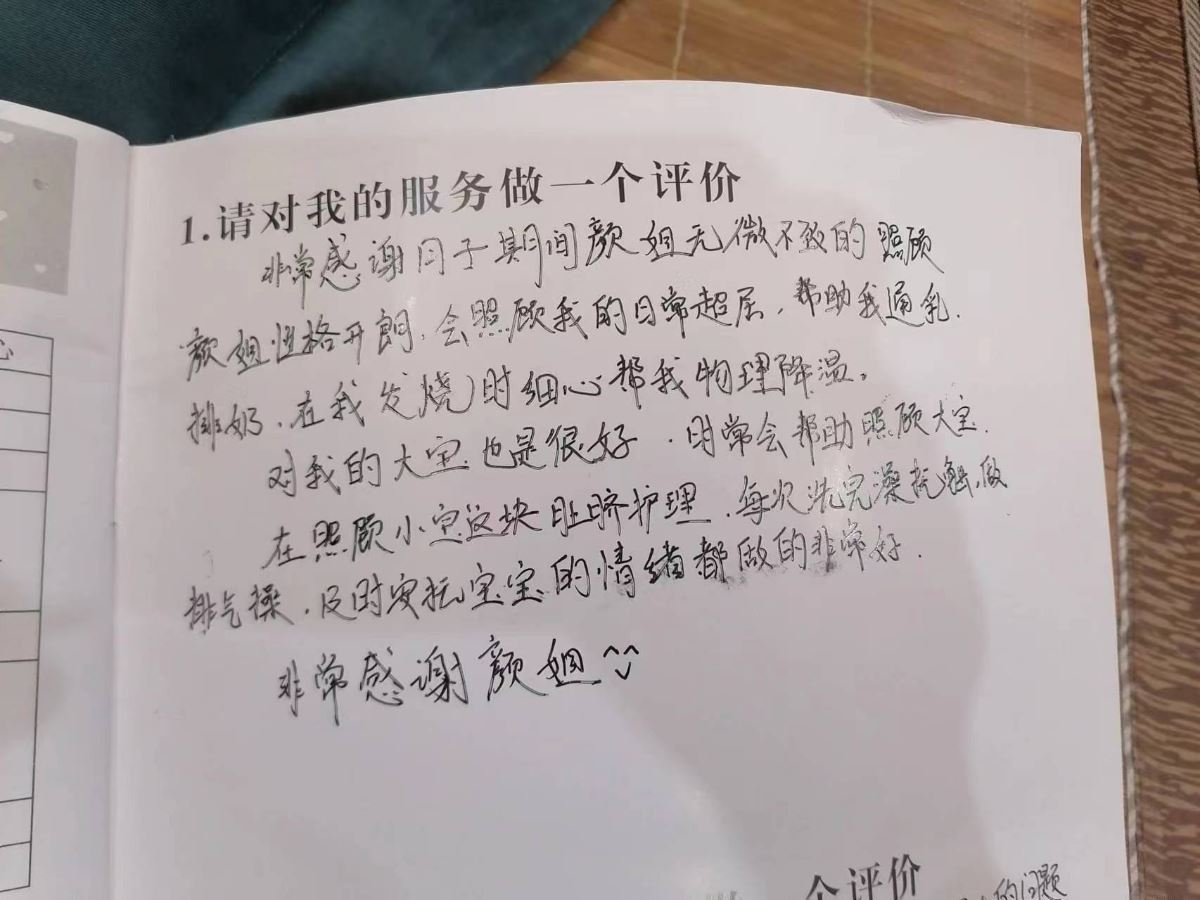 心
1.请对我的服务做一个评价
非常感谢月子期间颜姐无微不致的照顾
颜姐性格开朗,会照顾我的日常起居,帮助我通乳.
排奶.在我发烧时细心帮我物理降温。
对我的大宝也是很好.时常会帮助照顾大宝.
在照顾小宝这块肚脐护理.每次洗完澡抚触.做
排气操.及时安抚宝宝的情绪都做的非常好.
非常感谢颜姐^◡^
个评价
的问题